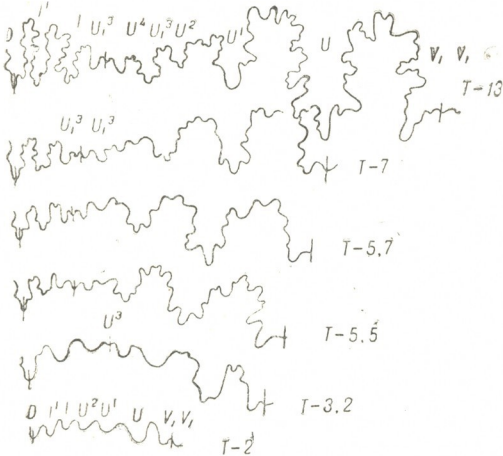 D I' I U₁³ U⁴ U₁³ U² U' U V₁ V₁
T-13
U₁³ U₁³
T-7
T-5.7
T-5.5
U³
T-3.2
D I' I U² U' U V₁ V₁
T-2